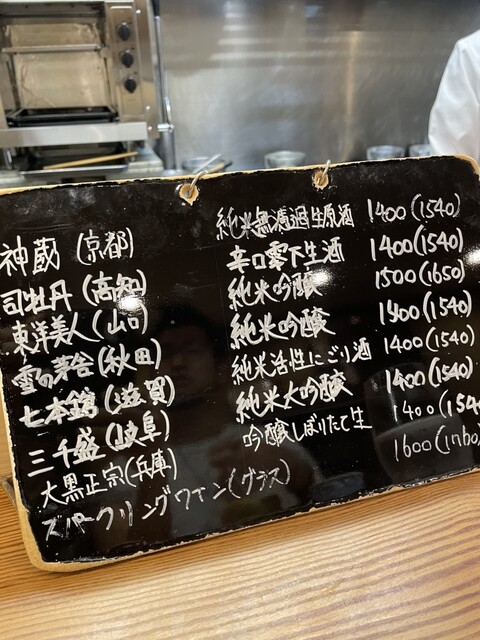 神蔵 (京都) 純米無濾過生原酒 1400(1540)
司牡丹 (高知) 辛口零下生酒 1400(1540)
東洋美人 (山口) 純米吟醸 1500(1650)
雪の茅舎 (秋田) 純米吟醸 1400(1540)
七本鎗 (滋賀) 純米活性にごり酒 1400(1540)
三千盛 (岐阜) 純米大吟醸 1400(1540)
大黒正宗 (兵庫) 吟醸しぼりたて生 1400(1540
スパークリングワイン(グラス) 1600(1760)